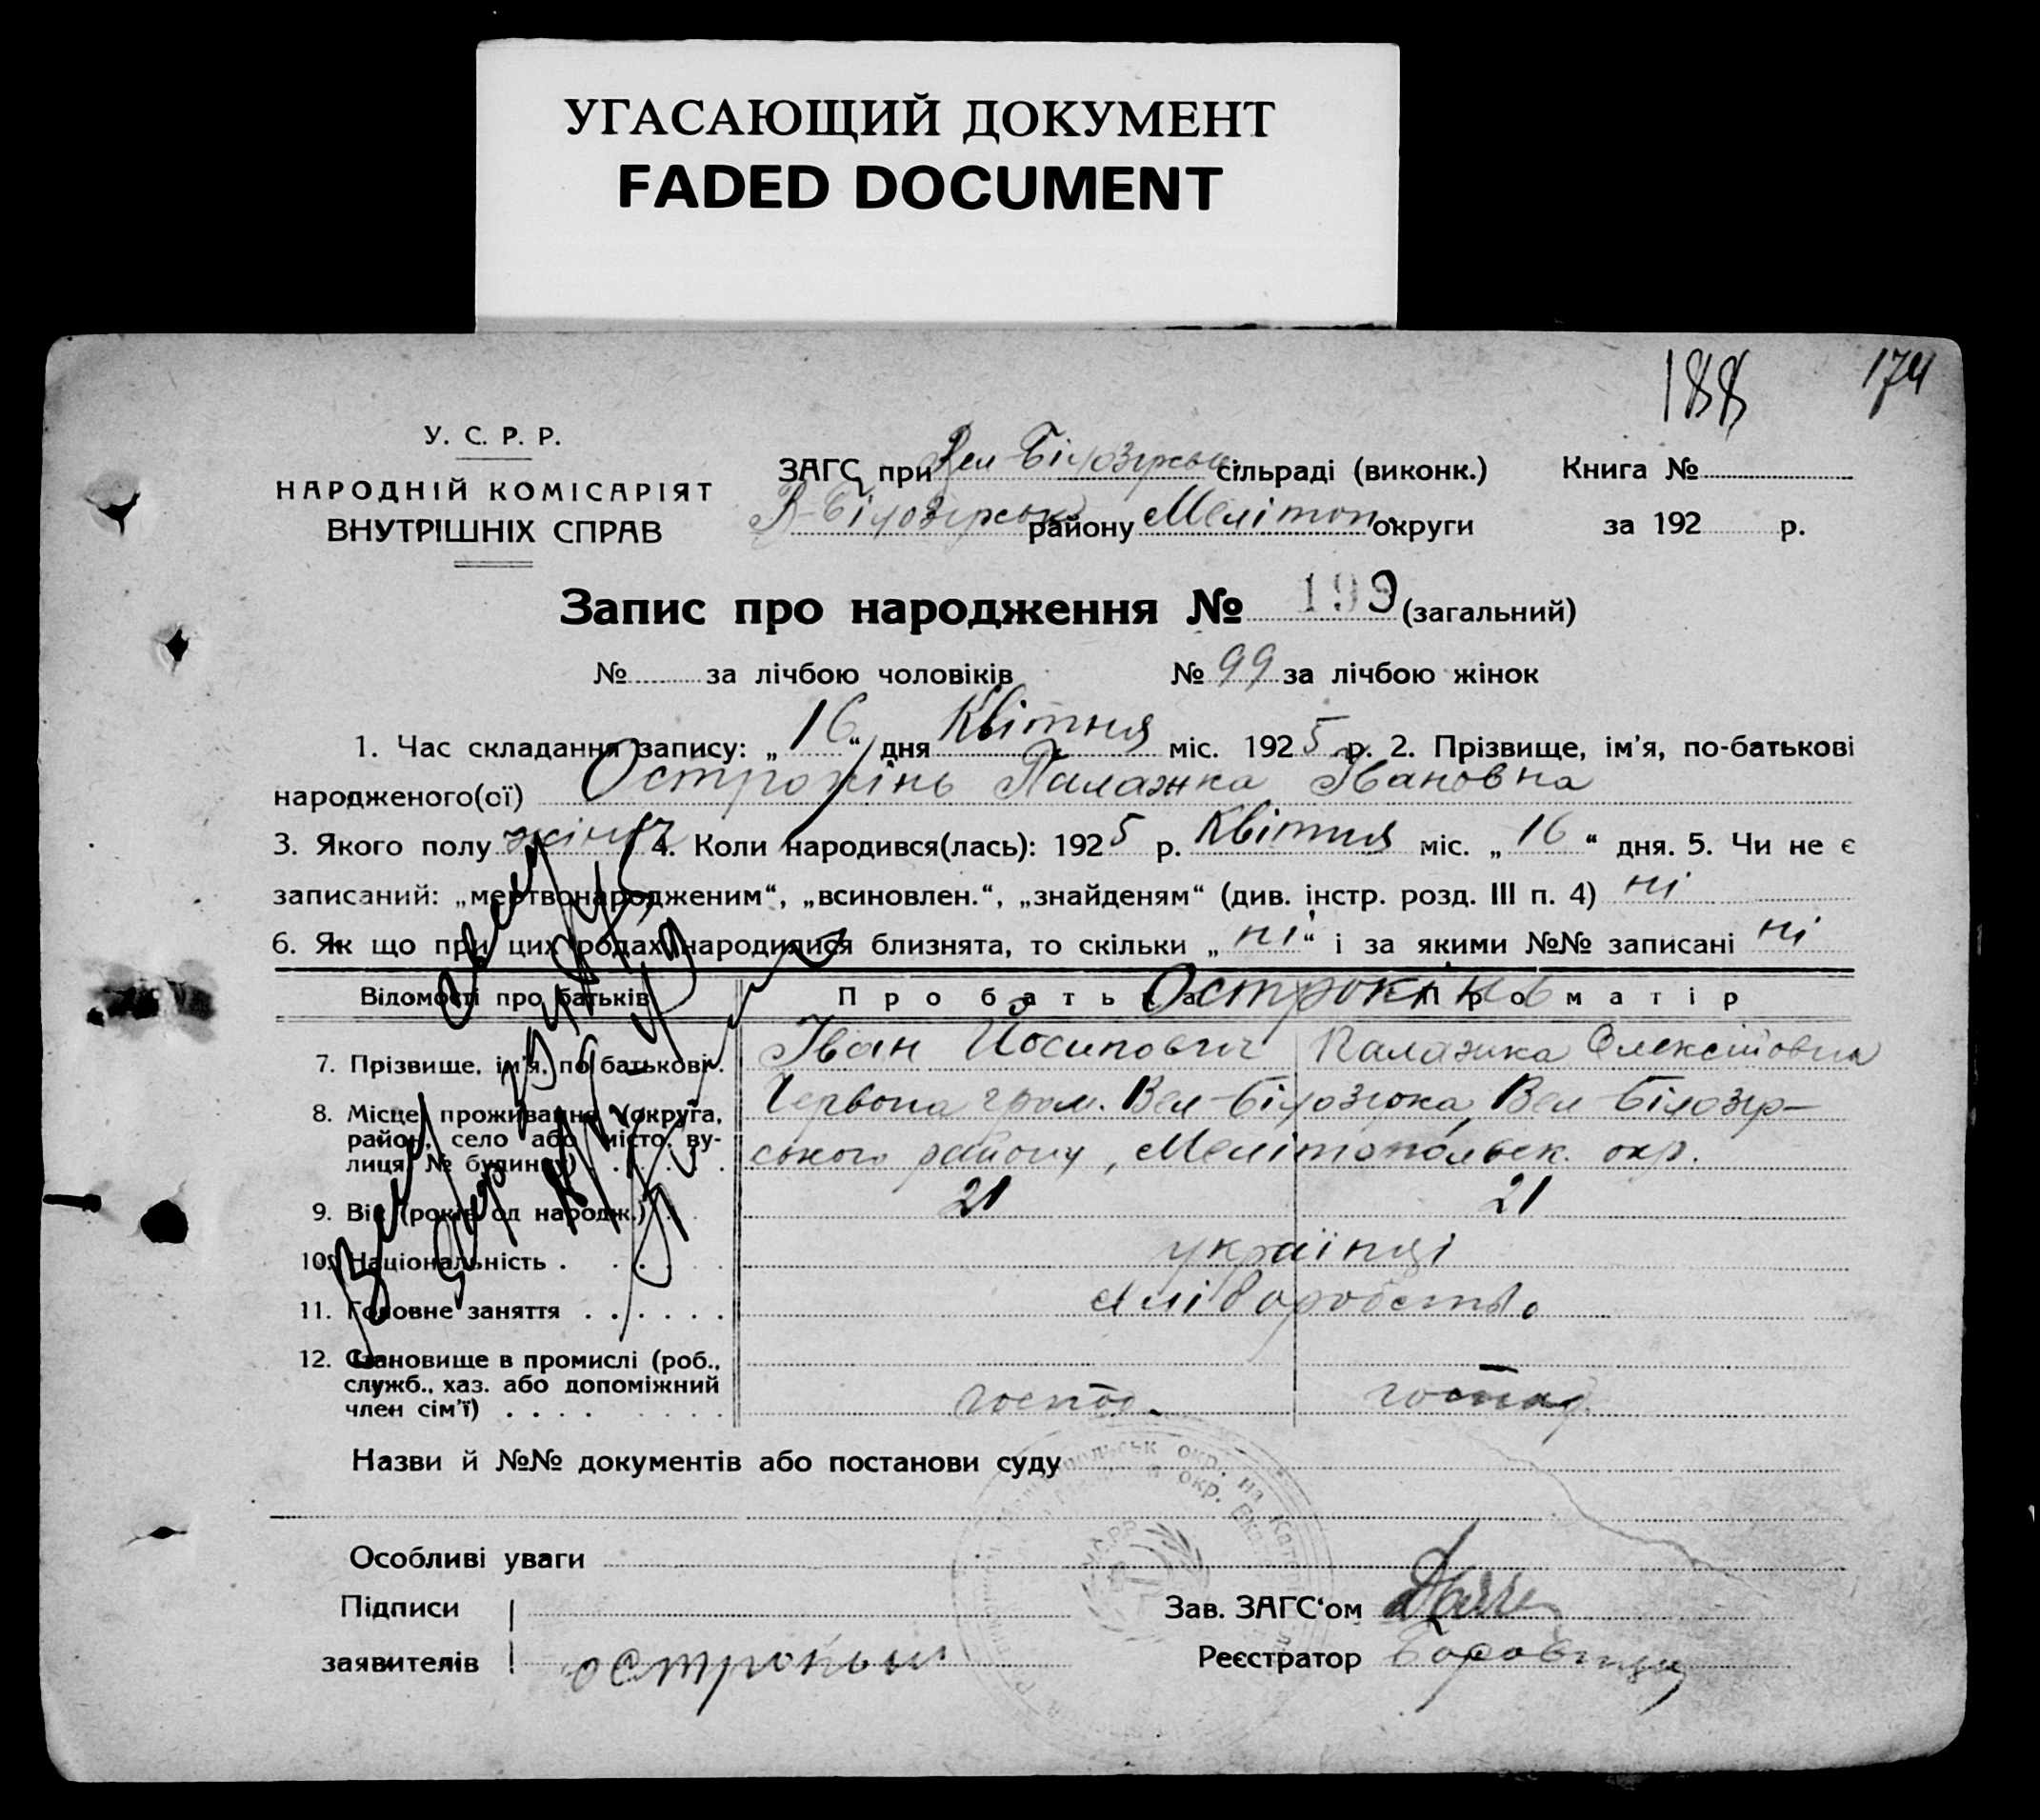 УГАСАЮЩИЙ ДОКУМЕНТ
FADED DOCUMENT
188 174
У. С. Р. Р.
НАРОДНІЙ КОМІСАРІЯТ
ВНУТРІШНІХ СПРАВ
ЗАГС при Вел-Білозірськ. сільраді (виконк.) Книга №
В-Білозірськ району Мелітоп. округи за 192 р.
Запис про народження № 199 (загальний)
№ за лічбою чоловіків № 99 за лічбою жінок
1. Час складання запису: „16“ дня Квітня міс. 1925 р. 2. Прізвище, ім'я, по-батькові
народженого(ої) Острокінь Палажка Івановна
3. Якого полу жіноч 4. Коли народився(лась): 1925 р. Квітня міс. „16“ дня. 5. Чи не є
записаний: „мертвонародженим“, „всиновлен.“, „знайденям“ (див. інстр. розд. III п. 4) ні
6. Як що при цих родах народилися близнята, то скільки „ні“ і за якими №№ записані ні
Відомості про батьків Про батька Про матір
Острокінь
7. Прізвище, ім'я, по батькові. Іван Йосипович Палажка Олексійовна
8. Місце проживання (округа, Червона гром. Вел-Білозірка, Вел-Білозір-
район, село або місто, ву-
лиця, № будинку) ського району, Мелітопольськ. окр.
9. Вік (років од народж.) 21 21
10. Національність українці
11. Головне заняття хліборобство
12. Становище в промислі (роб.,
служб., хаз. або допоміжний
член сім'ї) господ. господ.
Назви й №№ документів або постанови суду
Особливі уваги
Підписи
заявителів
Зав. ЗАГС'ом
Реєстратор